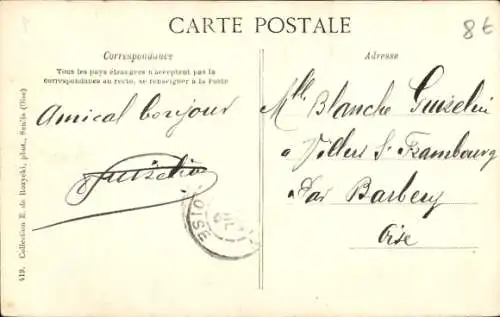 CARTE POSTALE
8€
Correspondance
Tous les pays étrangers n'acceptent pas la
correspondance au recto, se renseigner à la Poste
Amical bonjour
Guizelin
Adresse
Mlle Blanche Guizelin
à Villers St Frambourg
Par Barbery
Oise
OISE
419. Collection E. de Rozycki, phot., Senlis (Oise)